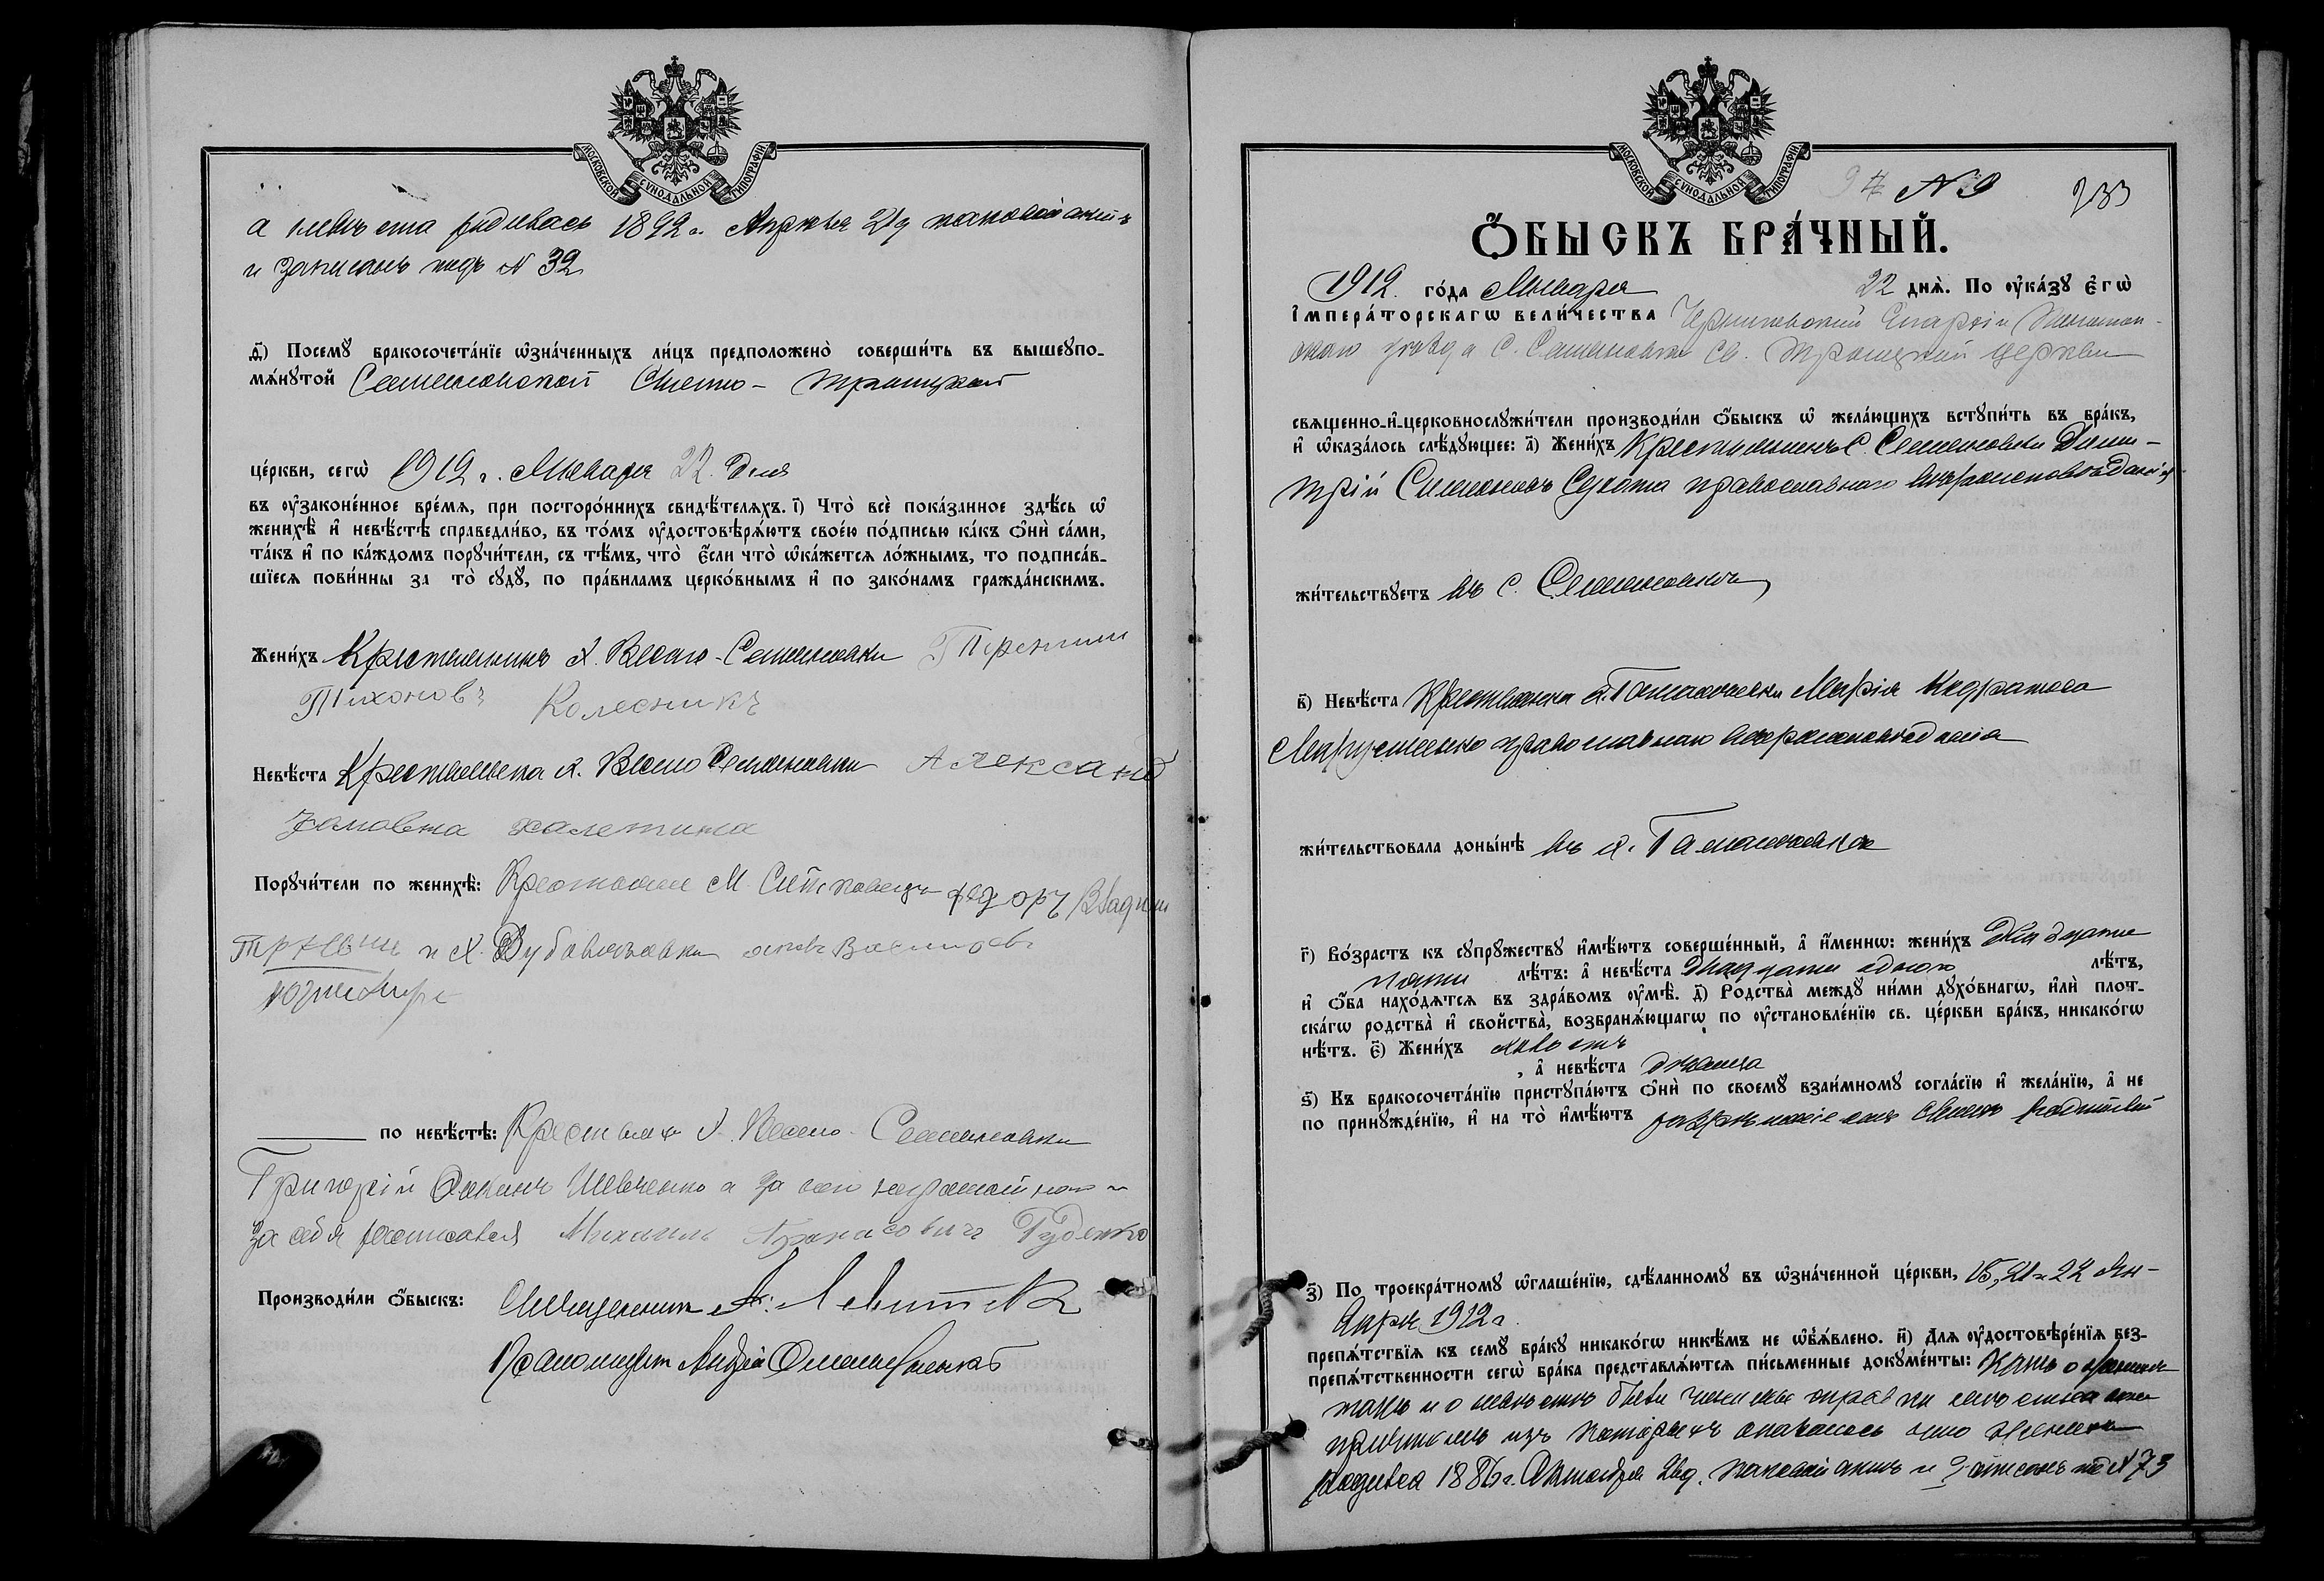 МОСКОВСКОЙ СѴНОДАЛЬНОЙ ТИПОГРАФІИ
а невѣста родилась 1892 г. Апрѣля 21 д каковой актъ
и записанъ подъ № 32
д҃) Посемꙋ бракосочета́нїе ѡ҆зна́ченныхъ ли́цъ предположено̀ соверши́ть въ вышеупо-
мѧ́нꙋтой Семеновской Свято-Троицкой
це́ркви, сегѡ̀ 1912 г. Января 22 дня
въ оу҆законе́нное вре́мѧ, при посторо́ннихъ свидѣ́телѧхъ. і҃) Что̀ всѐ пока́занное здѣ́сь ѡ҆
женихѣ̀ и҆ невѣ́стѣ справедли́во, въ то́мъ оу҆достовѣрѧ́ютъ свое́ю по́дписью ка́къ ѻ҆нѝ са́ми,
та́къ и҆ по ка́ждомъ порꙋчи́тели, съ тѣ́мъ, что̀ є҆́сли что̀ ѡ҆ка́жетсѧ ло́жнымъ, то подписа́в-
шїесѧ пови́нны за то̀ сꙋдꙋ̀, по пра́виламъ церко́внымъ и҆ по зако́намъ гражда́нскимъ.
Жени́хъ Крестьянинъ х. Весело-Семеновки
Тихоновъ Колесникъ
Невѣ́ста Крестьянка х. Весело Семеновки Александ
Порꙋчи́тели по женихѣ̀: Крестьяне М. Ѳедоръ
и х.
по невѣ́стѣ: Крестьяне х. Весело-Семеновки
Григорій Шевченко а за него неграмотнаго и
за себя росписался Михаилъ Руденко
Производи́ли ѻ҆́быскъ: Священникъ А. Левитскі
Псаломщикъ Андрей
МОСКОВСКОЙ СѴНОДАЛЬНОЙ ТИПОГРАФІИ
№ 9 233
Ѻ҆́БЫСКЪ БРА́ЧНЫЙ.
1912 го́да Января 22 днѧ̀. По оу҆ка́зꙋ є҆гѡ̀
і҆мпера́торскагѡ вели́чества Черниговской Епархіи
скаго уѣзда С. Семеновки Св. Троицкой церкви
свѧще́нно-и҆-церковнослꙋжи́тели производи́ли ѻ҆́быскъ ѡ҆ жела́ющихъ встꙋпи́ть въ бра́къ,
и҆ ѡ҆каза́лось слѣ́дꙋющее: а҃) Жени́хъ Крестьянинъ С. Семеновки Дими-
трій Симоновъ Сухота православнаго вѣроисповѣданія
жи́тельствꙋетъ въ с. Семеновкѣ
в҃) Невѣ́ста Крестьянка Марія Кодратова
православнаго вѣроисповѣданія
жи́тельствовала доны́нѣ въ х.
г҃) Во́зрастъ къ сꙋпрꙋ́жествꙋ и҆мѣ́ютъ соверше́нный, а҆ и҆́меннѡ: жени́хъ двадцати
пяти лѣ́тъ: а҆ невѣ́ста двадцати одного лѣ́тъ,
и҆ ѻ҆́ба нахо́дѧтсѧ въ здра́вомъ оу҆мѣ̀. д҃) Ро́дства̀ междꙋ̀ ни́ми дꙋхо́внагѡ, и҆лѝ плот-
ска́гѡ родства̀ и҆ свойства̀, возбранѧ́ющагѡ по оу҆становле́нїю св. це́ркви бра́къ, никако́гѡ
нѣ́тъ. є҃) Жени́хъ холостъ
, а҆ невѣ́ста дѣвица
ѕ҃) Къ бракосочета́нїю пристꙋпа́ютъ ѻ҆нѝ по своемꙋ̀ взаи́мномꙋ согла́сїю и҆ жела́нїю, а҆ не
по принꙋжде́нїю, и҆ на то̀ и҆мѣ́ютъ разрѣшеніе отъ своихъ родителей
з҃) По троекра́тномꙋ ѡ҆глаше́нїю, сдѣ́ланномꙋ въ ѡ҆зна́ченной це́ркви, 15, 21 и 22 Ян-
варя 1912 г.
препѧ́тствїѧ къ семꙋ̀ бра́кꙋ никако́гѡ никѣ́мъ не ѡ҆б̾ѧ́влено. и҃) Для оу҆достовѣре́нїѧ без-
препѧ́тственности сегѡ̀ бра́ка представлѧ́ютсѧ пи́сьменные докꙋме́нты: какъ о женихѣ
такъ и о невѣстѣ были справки
изъ которыхъ оказалось что женихъ
родился 1886 г. Октября 26 д. каковой актъ и записанъ под № 73